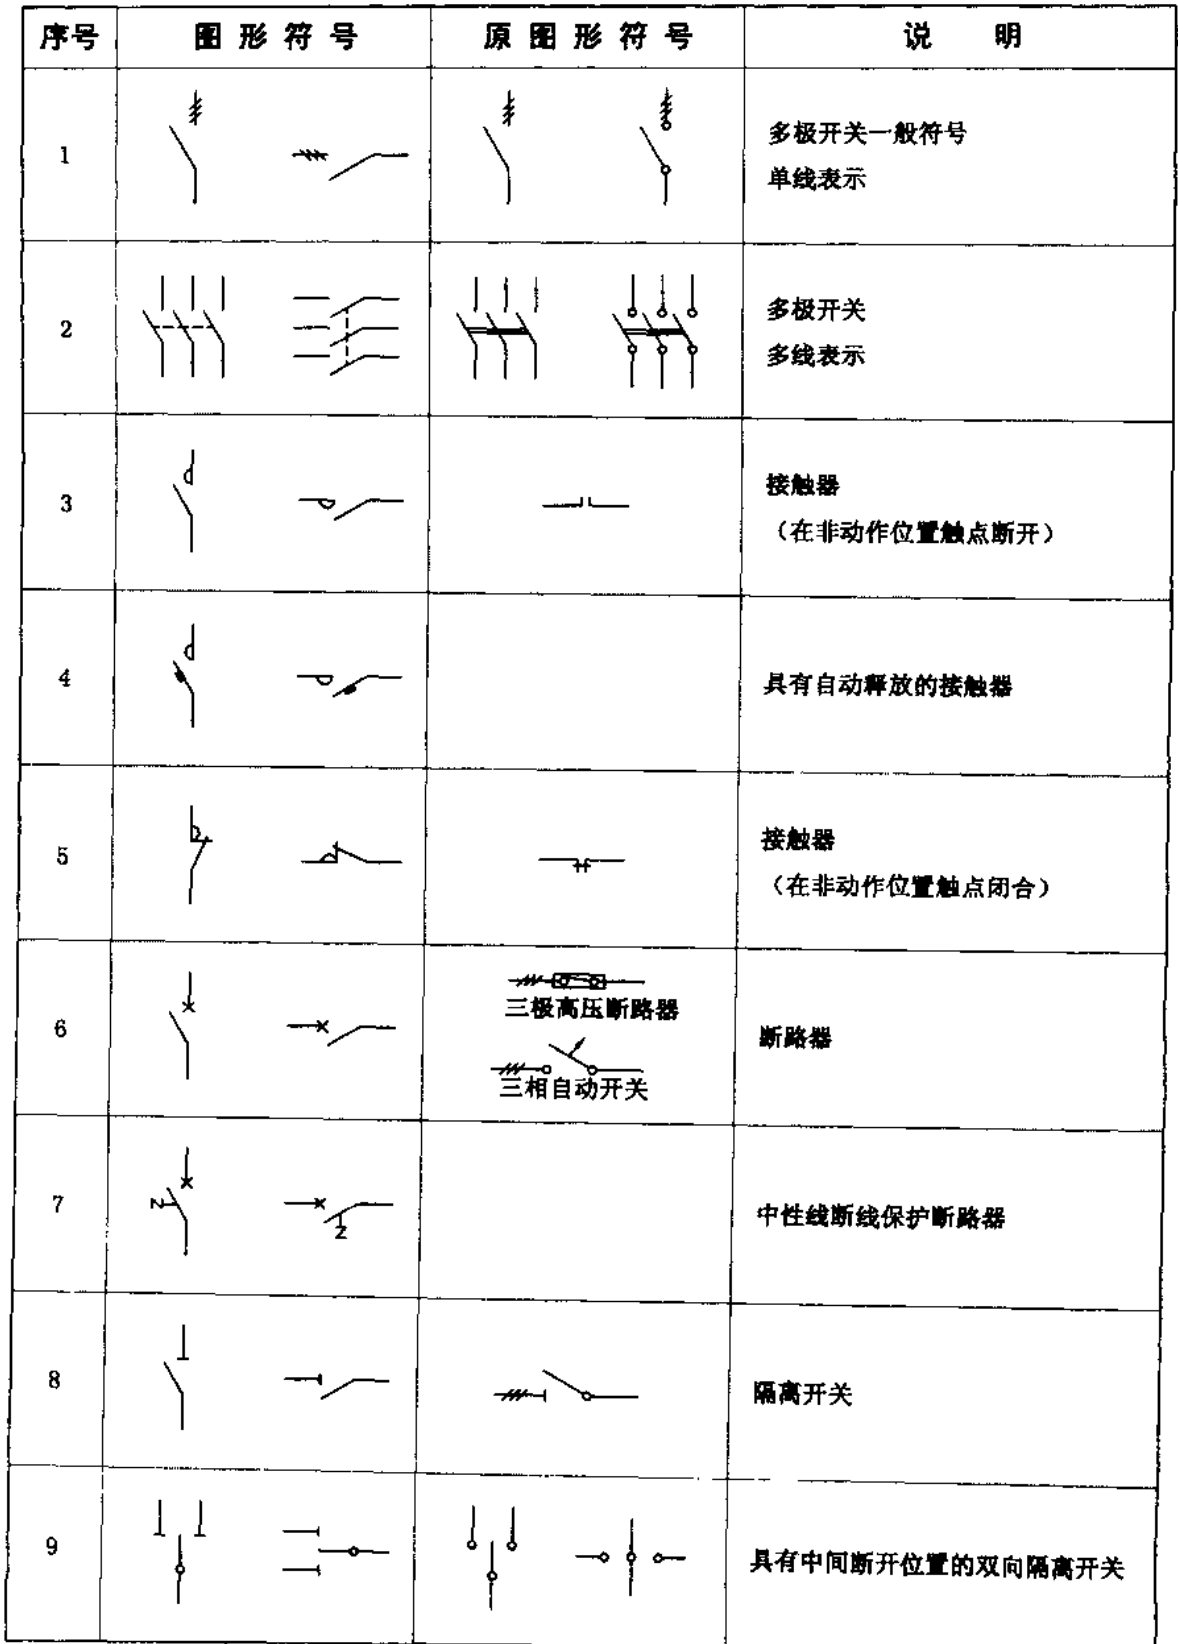 序号 图形符号 原图形符号 说 明
1
多极开关一般符号
单线表示
2
多极开关
多线表示
3
接触器
（在非动作位置触点断开）
4
具有自动释放的接触器
5
接触器
（在非动作位置触点闭合）
6
三极高压断路器
三相自动开关
断路器
7
Z
Z
中性线断线保护断路器
8
隔离开关
9
具有中间断开位置的双向隔离开关